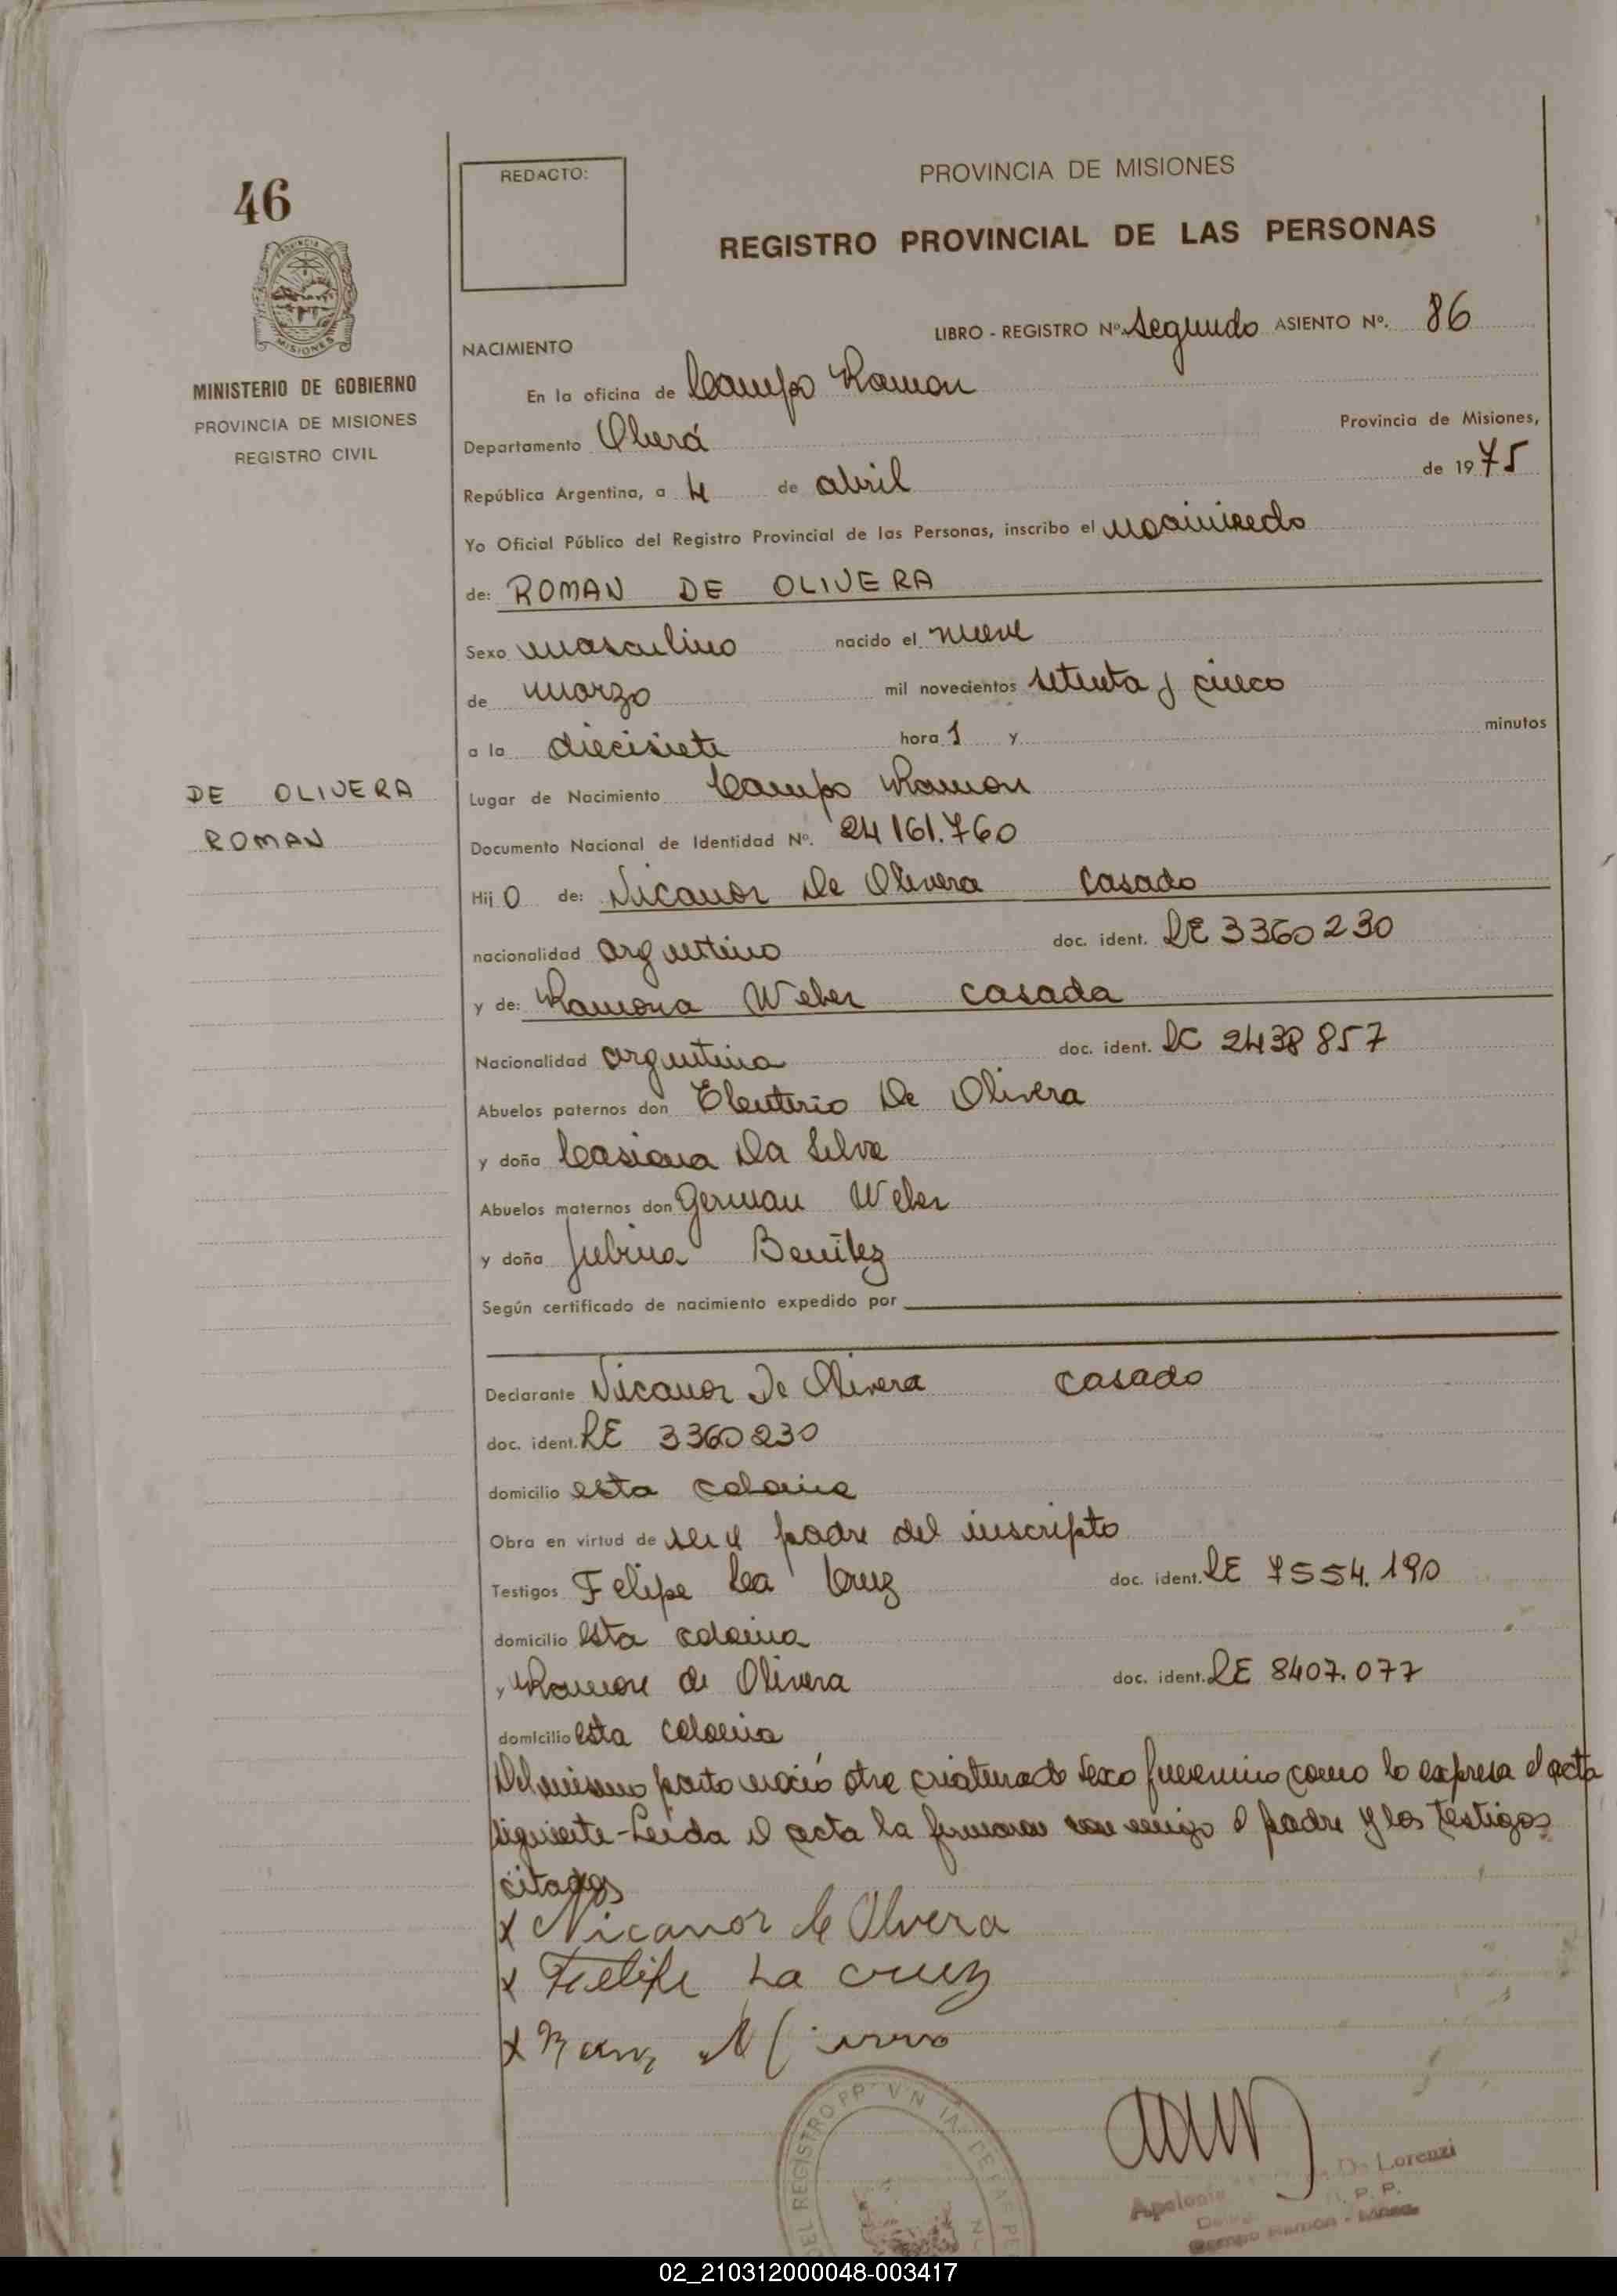 46
PROVINCIA DE MISIONES
MINISTERIO DE GOBIERNO
PROVINCIA DE MISIONES
REGISTRO CIVIL
REDACTO:
PROVINCIA DE MISIONES
REGISTRO PROVINCIAL DE LAS PERSONAS
LIBRO - REGISTRO Nº. Segundo ASIENTO Nº. 86
NACIMIENTO
En la oficina de Campo Ramon
Departamento Oberá Provincia de Misiones,
República Argentina, a 4 de abril de 1975
Yo Oficial Público del Registro Provincial de las Personas, inscribo el nacimiento
de: ROMAN DE OLIVERA
Sexo masculino nacido el nueve
de marzo mil novecientos setenta y cinco
a la diecisiete hora 1 y minutos
DE OLIVERA
ROMAN
Lugar de Nacimiento Campo Ramon
Documento Nacional de Identidad Nº. 24161.760
Hij O de: Nicanor De Olivera casado
nacionalidad argentino doc. ident. LE 3360230
y de: Ramona Weber casada
Nacionalidad argentina doc. ident. LC 2438857
Abuelos paternos don Eleuterio De Olivera
y doña Casiana Da Silva
Abuelos maternos don German Weber
y doña Benitez
Según certificado de nacimiento expedido por
Declarante Nicanor De Olivera casado
doc. ident. LE 3360230
domicilio esta colonia
Obra en virtud de ser el padre del inscripto
Testigos Felipe La Cruz doc. ident. LE 7554.190
domicilio esta colonia
y Ramon de Olivera doc. ident. LE 8407.077
domicilio esta colonia
Del mismo parto nació otra criatura de sexo femenino como lo expresa el acta
siguiente - Leída el acta la firmaron conmigo el padre y los testigos
citados
x Nicanor de Olvera
x Felipe La cruz
x
DEL REGISTRO
De Lorenzi
Apolonia
R. P. P.
Campo Ramon - Mnes.
02_210312000048-003417